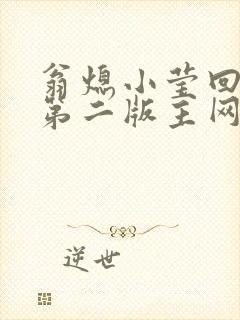 翁熄小莹回
第二版主网
逆世